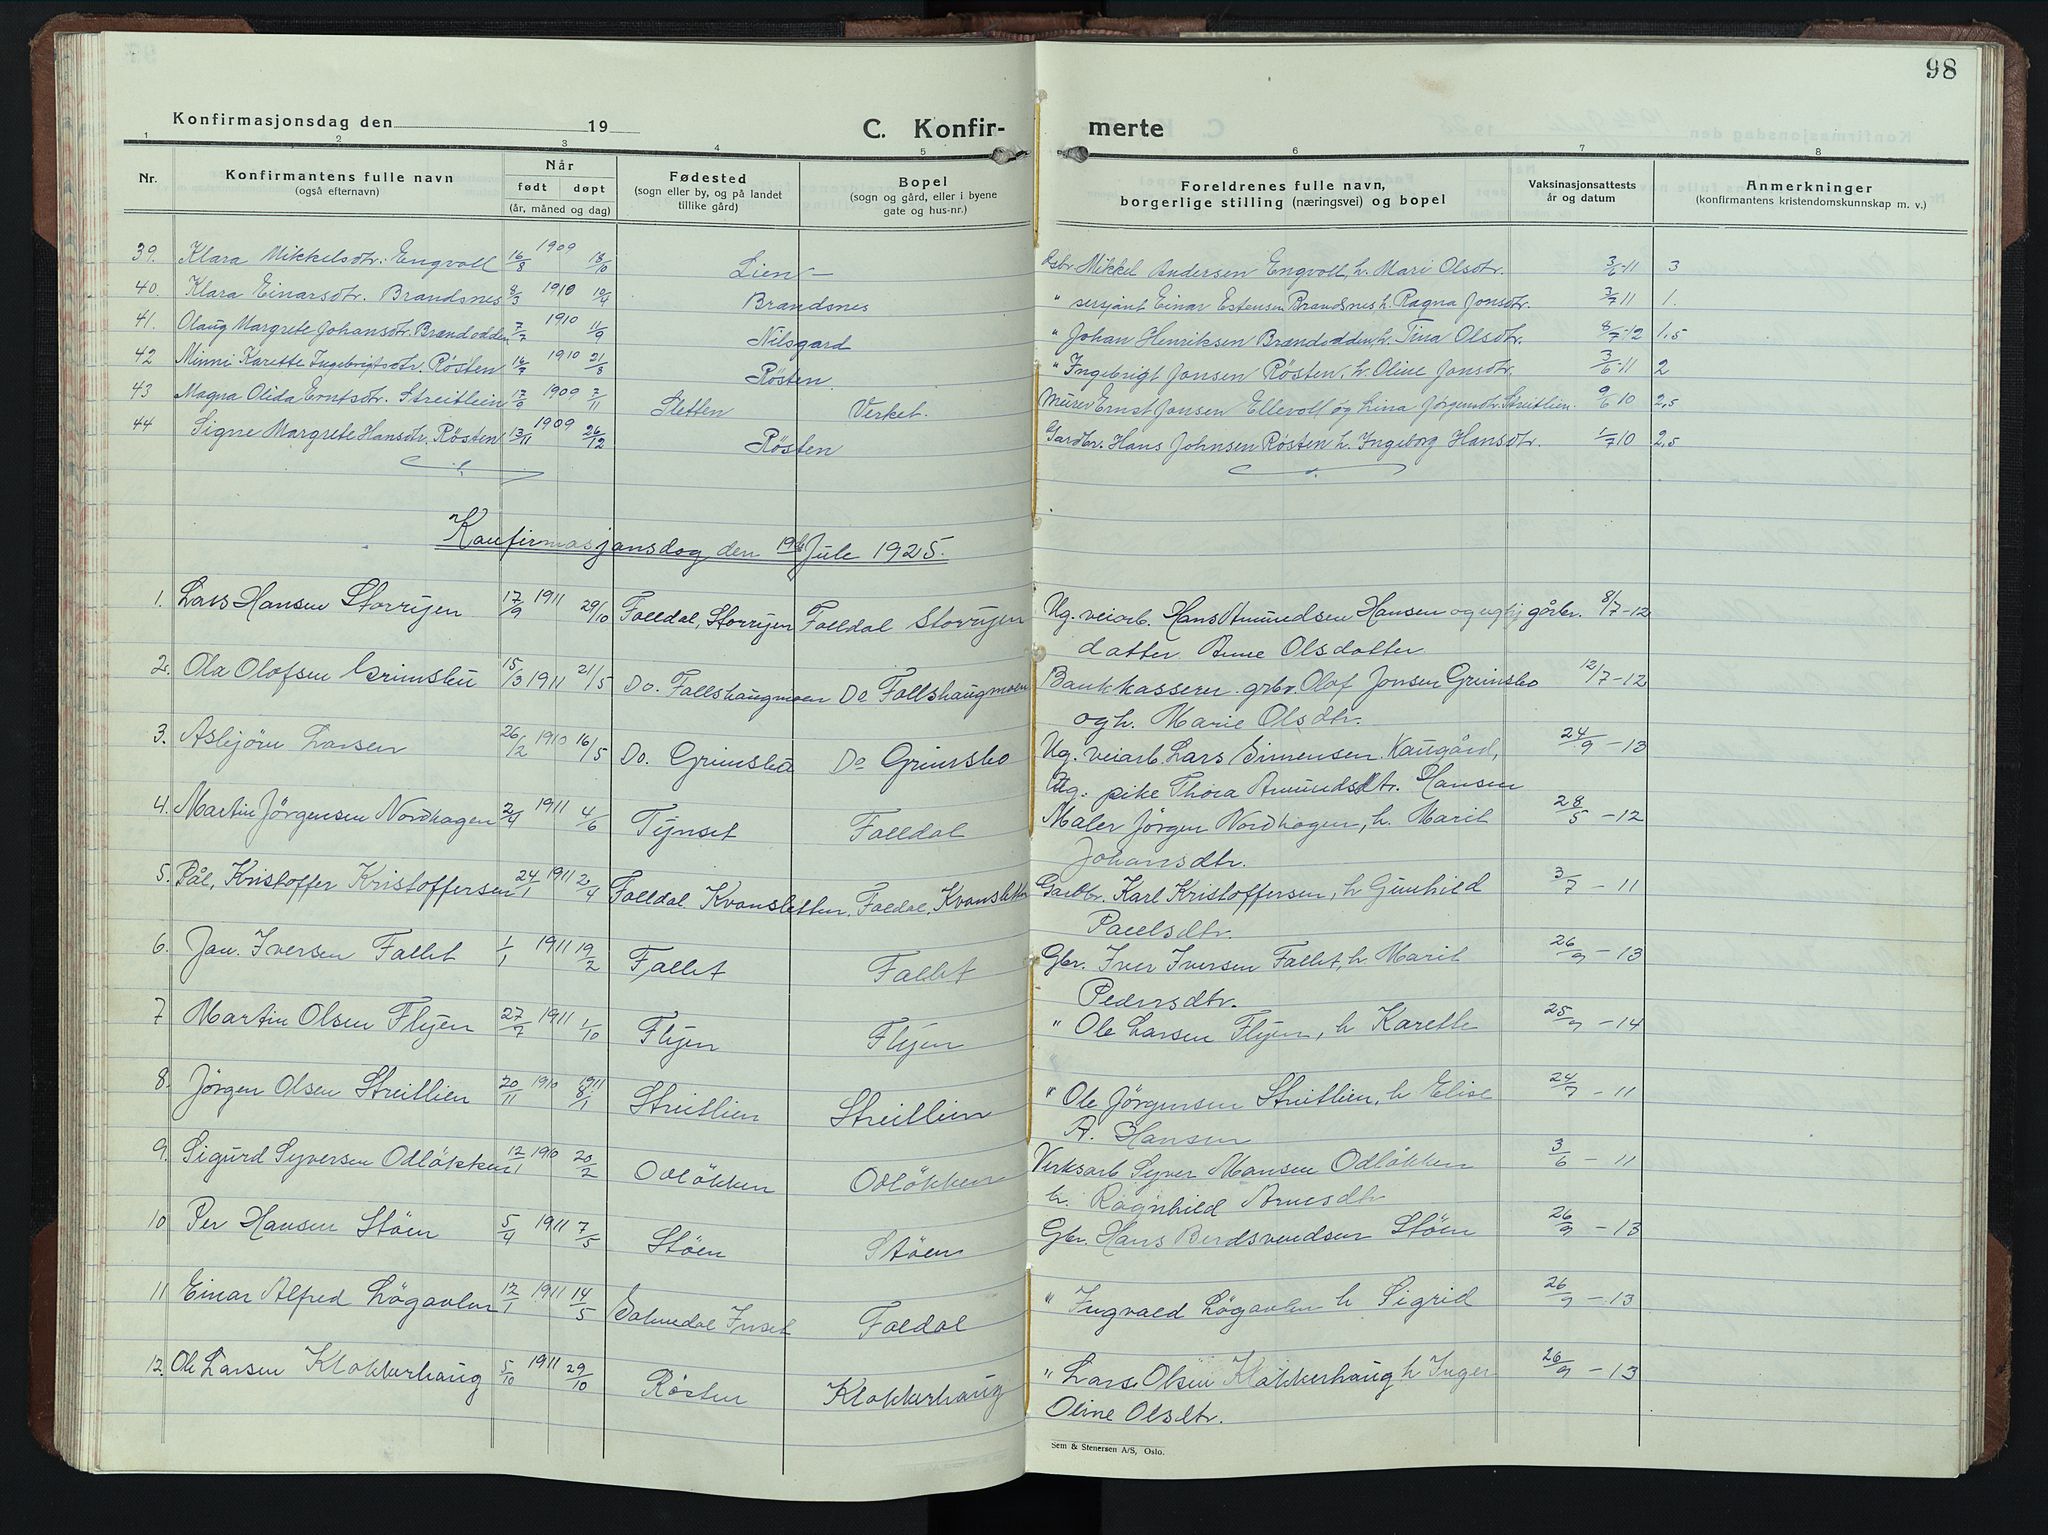 98
Konfirmasjonsdag den 19
C. Konfir- merte
1 2 3 4 5 6 7 8
Nr. Konfirmantens fulle navn (også efternavn) Når født døpt (år, måned og dag) Fødested (sogn eller by, og på landet tillike gård) Bopel (sogn og gård, eller i byene gate og hus-nr.) Foreldrenes fulle navn, borgerlige stilling (næringsvei) og bopel Vaksinasjonsattests år og datum Anmerkninger (konfirmantens kristendomskunnskap m. v.)
39. Klara Mikkelsdtr. Engvoll 16/8 1909 18/10 Lien – Gbr Mikkel Andersen Engvoll, h. Mari Olsdtr. 3/6-11 3
40. Klara Einarsdtr. Brandsnes 8/3 1910 10/4 Brandsnes " serjant Einar Estensen Brandsnes h. Ragna Jonsdtr. 3/7 11 1.
41. Olaug Margrete Johansdtr. Brændodden 7/7 1910 11/9 Nilsgard " Johan Henriksen Brændodden, h. Tina Olsdtr. 8/7-12 1,5
42 Minni Karette Ingebrigtsdtr. Røsten 16/7 1910 21/8 Røsten " Ingebrigt Jonsen Røsten, h. Oline Jonsdtr. 3/6-11 2
43 Magna Olida Erntsdtr. Streitlein 17/9 1909 7/11 Sletten Verket. Murer Ernst Jonsen Ellevoll og Lina Jørgensdtr. Streitlien. 9/6 10 2,5
44 Signe Margrete Hansdtr. Røsten 13/11 1909 26/12 Røsten Gardbr. Hans Johnsen Røsten h. Ingeborg Hansdtr. 1/7 10 2,5
Konfirmasjonsdag den 19de Jule 1925.
1. Lars Hansen Storrijen 17/9 1911 29/10 Folldal, Storrijen Folldal Storrijen Ug. veiarb. Hans Amundsen Hansen og ug. gårbr. 8/7-12
datter Anne Olsdatter
2. Ola Olofsen Grimsbu 15/3 1911 21/5 Do. Follshaugmoen Do Follshaugmoen Bankkasserer grbr. Olof Jonsen Grimsbo 12/7-12
og h. Marie Olsdtr.
3. Asbjørn Larsen 26/2 1910 16/5 Do. Grimsbu Do Grimsbo Ug. veiarb. Lars Simensen Kaugård, 24/9-13
Ug. pike Thora Amundsdtr. Hansen
4. Martin Jörgensen Nordhagen 2/4 1911 4/6 Tynset Folldal Maler Jörgen Nordhagen, h. Marit 28/5-12
Johansdtr.
5. Pål, Kristoffer Kristoffersen 24/1 1911 2/4 Folldal Kvonsletten, Foldal, Kvonsletten Gardbr. Karl Kristoffersen, h Gunhild 3/7-11
Paulsdtr.
6. Jan. Iversen Fallet 1/1 1911 19/2 Fallet Fallet Gbr. Iver Iversen Fallet, h Marit 26/9-13
Pedersdtr.
7 Martin Olsen Flyen 27/7 1911 1/10 Flyen Flyen " Ole Larsen Flyen, h Karette 25/9-14
8. Jörgen Olsen Streitlien 20/11 1910 1911 8/1 Streitlien Streitlien " Ole Jörgensen Streitlien, h Elise 24/7-11
A. Hansen
9. Sigurd Syversen Odlökken 12/1 1910 20/2 Odlökken Odlökken Verksarb Syver Mansen Odlökken 3/6-11
h. Ragnhild Arnesdtr
10 Per Hansen Stöen 5/4 1911 7/5 Stöen Stöen Gbr. Hans Berdsvendsen Stöen 26/9-13
11 Einar Alfred Lögavlen 12/1 1911 14/5 Inset Foldal " Ingvald Lögavlen h Sigrid 26/9-13
12. Ole Larsen Klokkerhaug 5/10 1911 29/10 Røsten Klokkerhaug " Lars Olsen Klokkerhaug h Inger 26/9-13
Oline Olsdtr.
Sem & Stenersen A/S, Oslo.